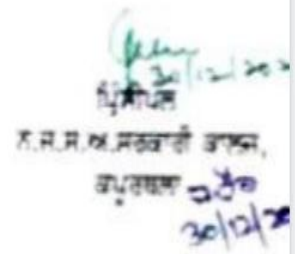 30/12/202
ਪ੍ਰਿੰਸੀਪਲ
ਨ.ਜ.ਸ.ਅ.ਸਰਕਾਰੀ ਕਾਲਜ,
ਕਪੂਰਥਲਾ
30/12/20